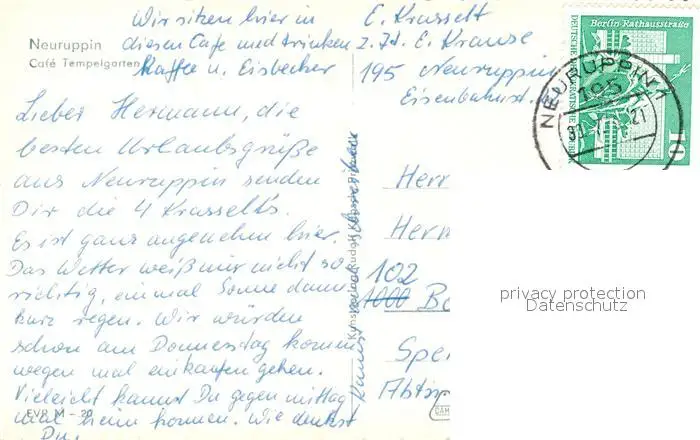 Wir sitzen hier in
diesen Cafe und trinken
Kaffee u. Eisbecher
Neuruppin
Café Tempelgarten
Lieber Hermann, die
besten Urlaubsgrüße
aus Neuruppin senden
Dir die 4 Krasselt's.
Es ist ganz angenehm hier.
Das Wetter weiß nur nicht so
richtig, einmal Sonne dann
kurz regen. Wir würden
schon am Donnerstag kommen
wegen mal einkaufen gehen.
Vielleicht kannst Du gegen mittag
mal heim kommen. Wie denkst
Du,
EVP M -,20
E. Krasselt
z. Zt. E. Krause
195 Neuruppin
Eisenbahnst.
Berlin-Rathausstraße
10
NEURUPPIN 1
195
Herr
Herm
102
1000 Be
Spe
Kunst
privacy protection
Datenschutz